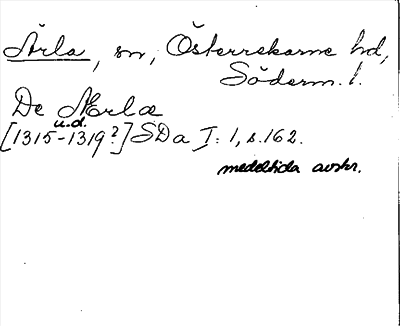 Ärla, sn, Österrekarne hd,
Söderm. l.
De Ærlæ
u.d.
[1315-1319?] SDa I: 1, s. 162.
medeltida avskr.